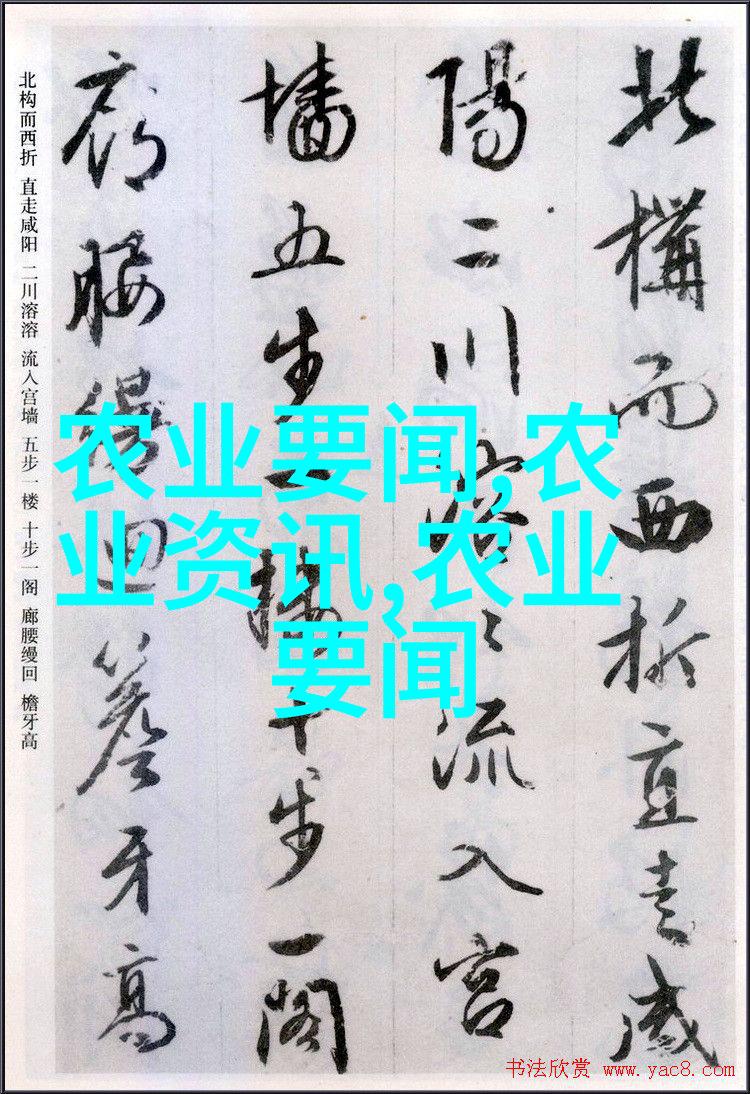 北構而西折直走咸
陽二川溶〻流入宮
墻五步一樓十步一閣
廊腰縵迴簷牙高
北构而西折 直走咸阳 二川溶溶 流入宫墙 五步一楼 十步一阁 廊腰缦回 檐牙高
农业要闻,农
业资讯,农业
要闻
书法欣赏 www.yac8.com